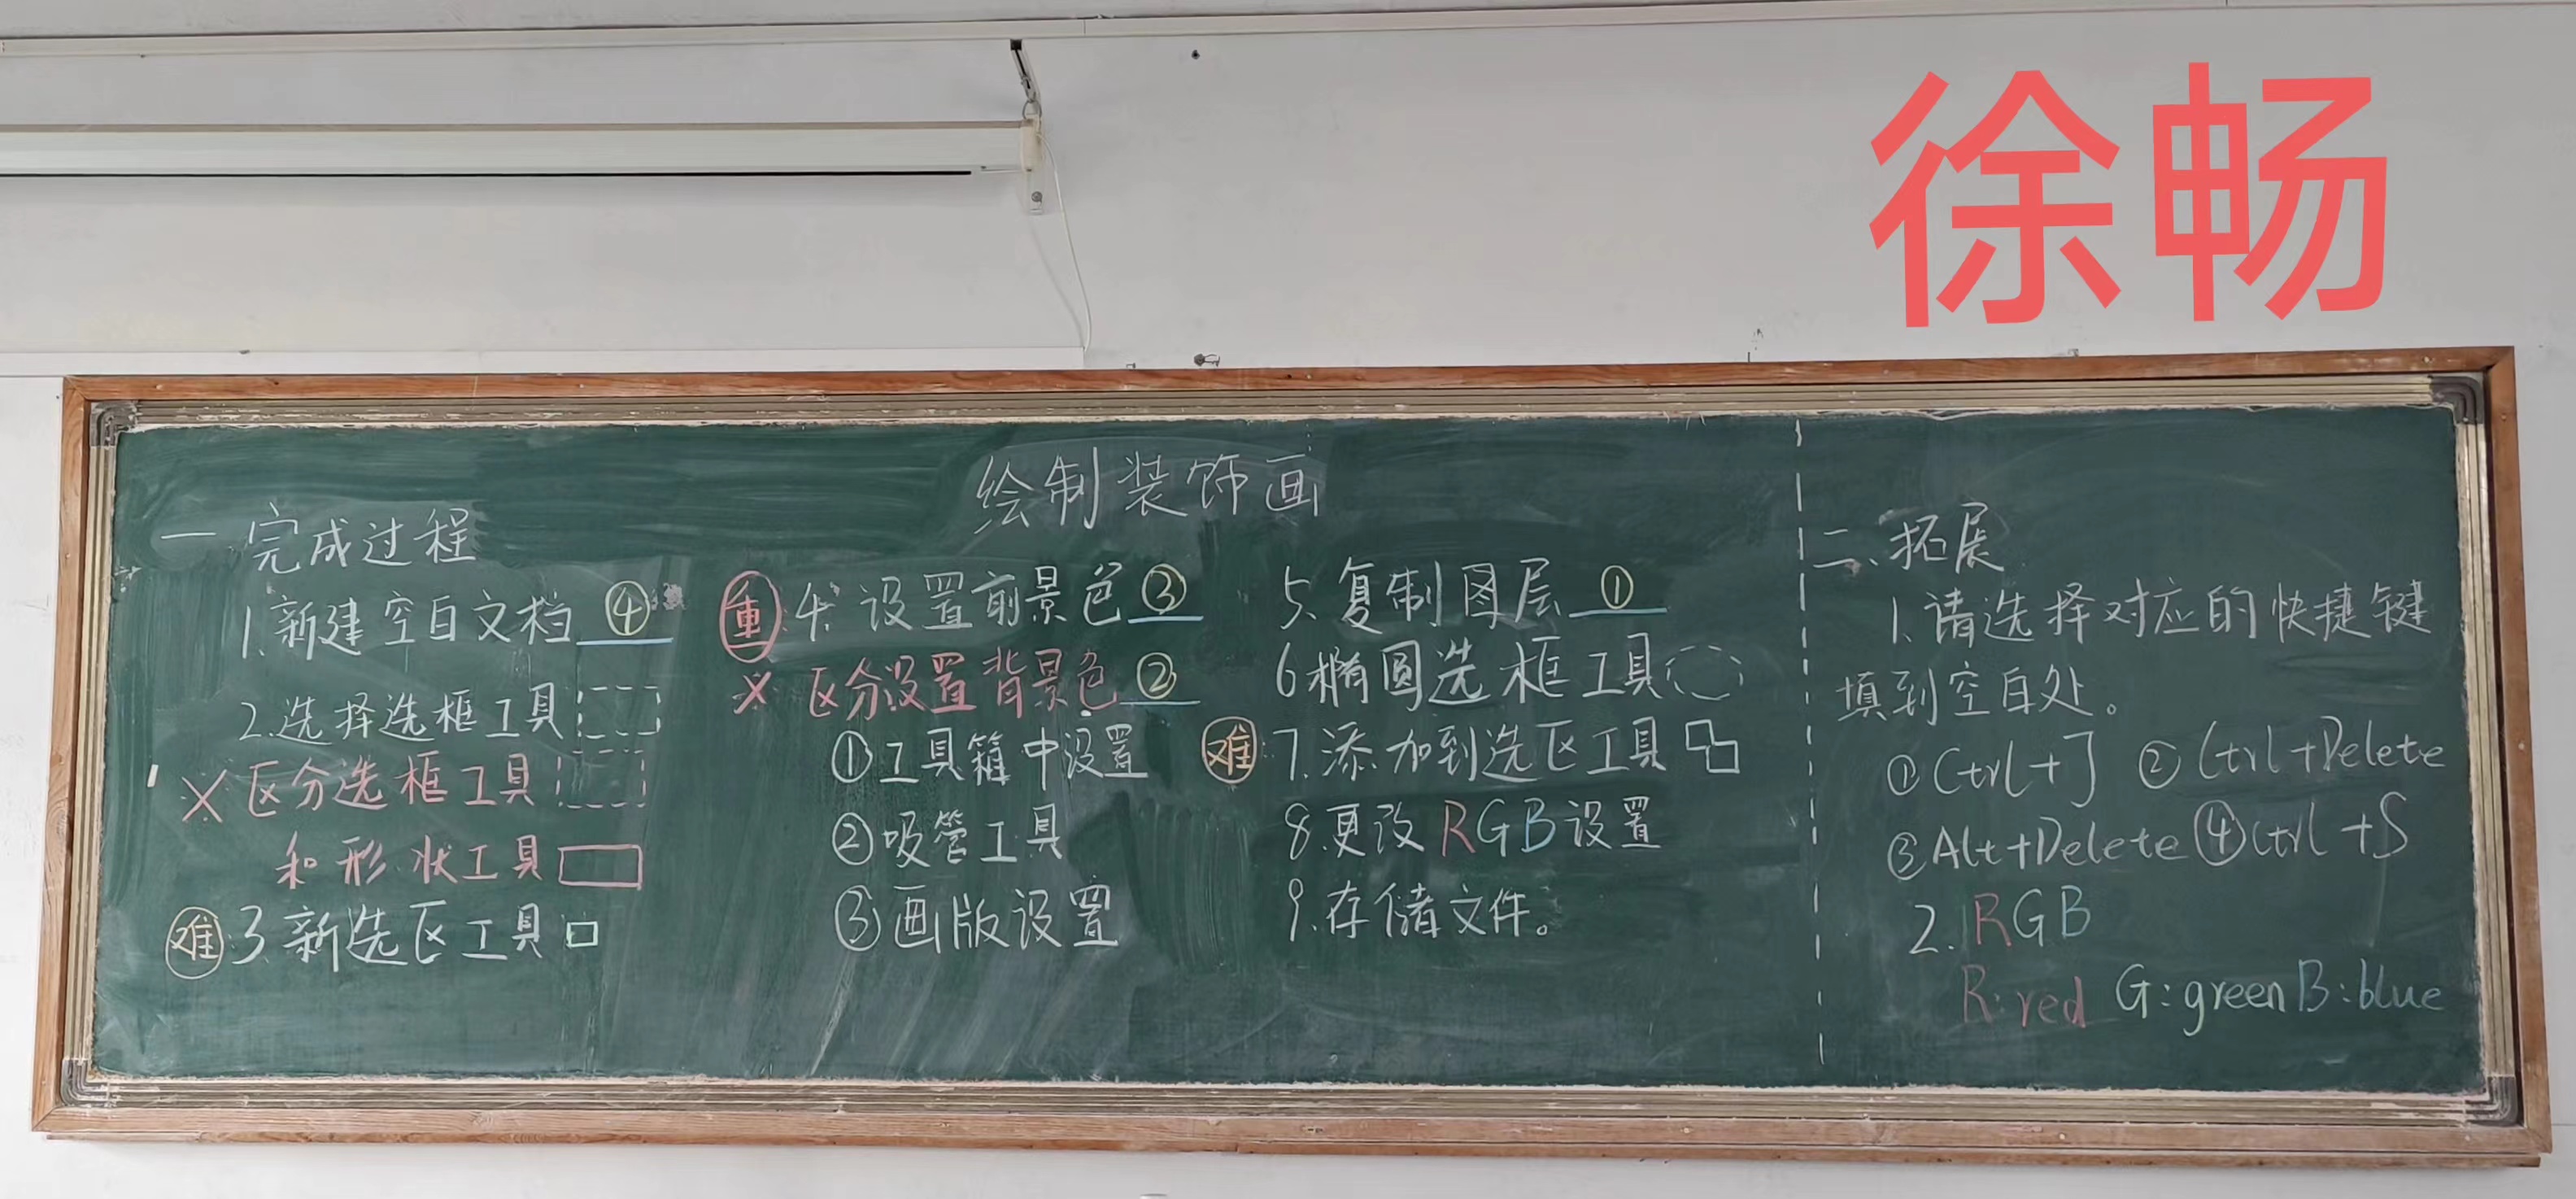 徐畅
绘制装饰画
一 完成过程
1.新建空白文档 ④
2.选择选框工具
※ 区分选框工具
和形状工具
难 3.新选区工具
重 4.设置前景色 ③
※ 区分设置背景色 ②
①工具箱中设置
②吸管工具
③画版设置
5.复制图层 ①
6椭圆选框工具
难 7.添加到选区工具
8.更改RGB设置
9.存储文件。
二、拓展
1.请选择对应的快捷键
填到空白处。
①Ctrl+J ②Ctrl+Delete
③Alt+Delete ④Ctrl+S
2.RGB
R:red G:green B:blue